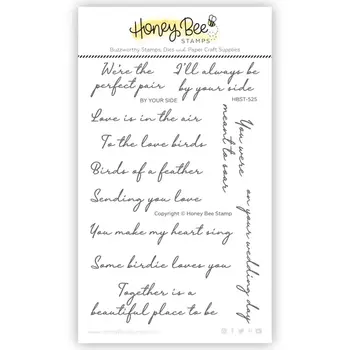 Honey Bee
STAMPS
Buzzworthy Stamps, Dies and Paper Craft Supplies
We're the
perfect pair
I'll always be
by your side
BY YOUR SIDE
HBST-525
Love is in the air
To the love birds
Birds of a feather
Sending you love
Copyright © Honey Bee Stamp
You make my heart sing
Some birdie loves you
Together is a
beautiful place to be
You were
meant to soar
on your wedding day